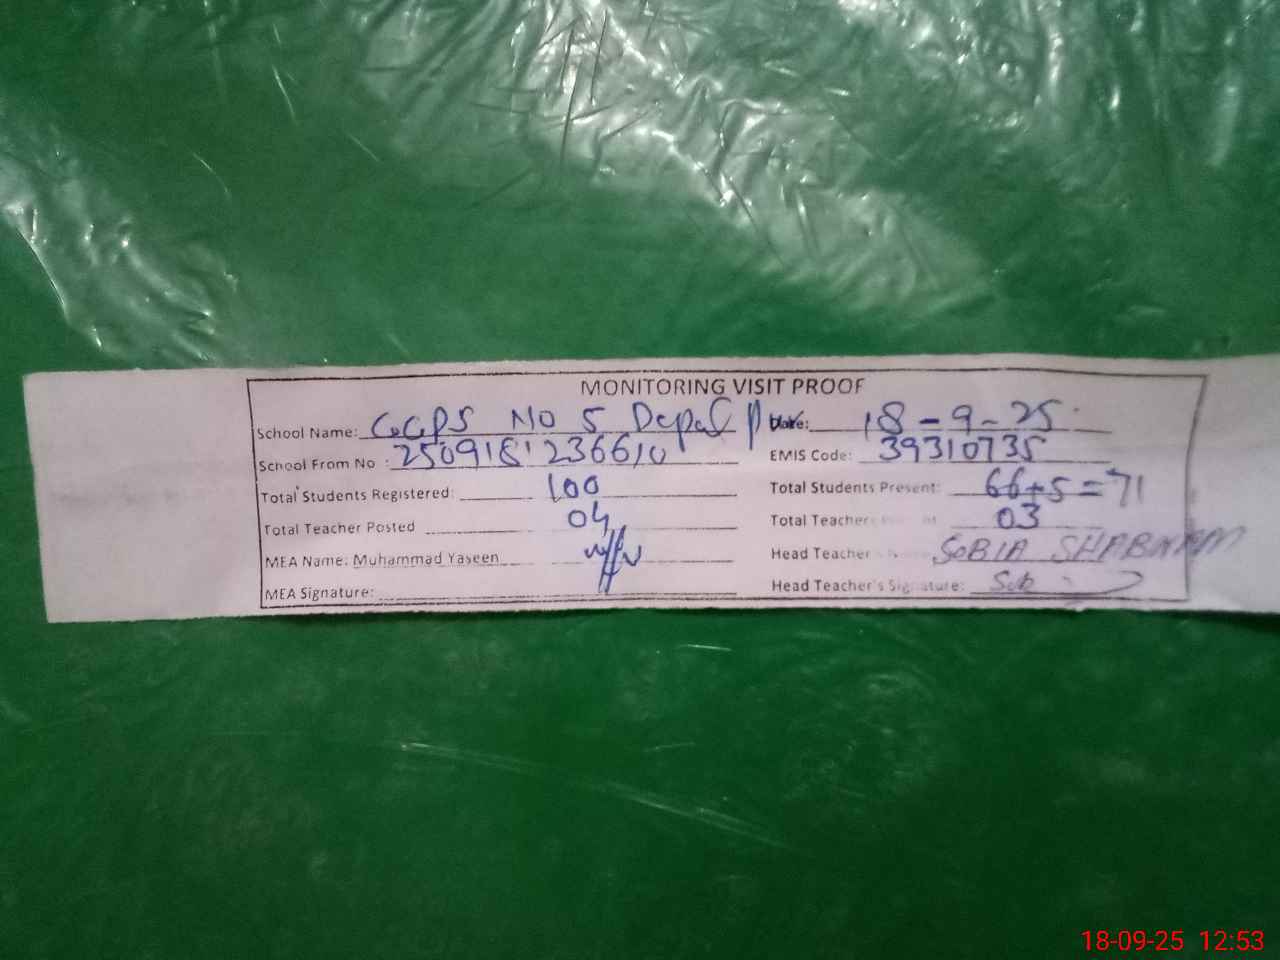 MONITORING VISIT PROOF
School Name: GGPS No 5 Depal p Date: 18-9-25
School From No : 2509181236610 EMIS Code: 39310735
Total Students Registered: 100 Total Students Present: 66+5=71
Total Teacher Posted 04 Total Teacher 03
MEA Name: Muhammad Yaseen Head Teacher SOBIA SHABNAM
MEA Signature: Head Teacher's Signature: Sob
18-09-25 12:53